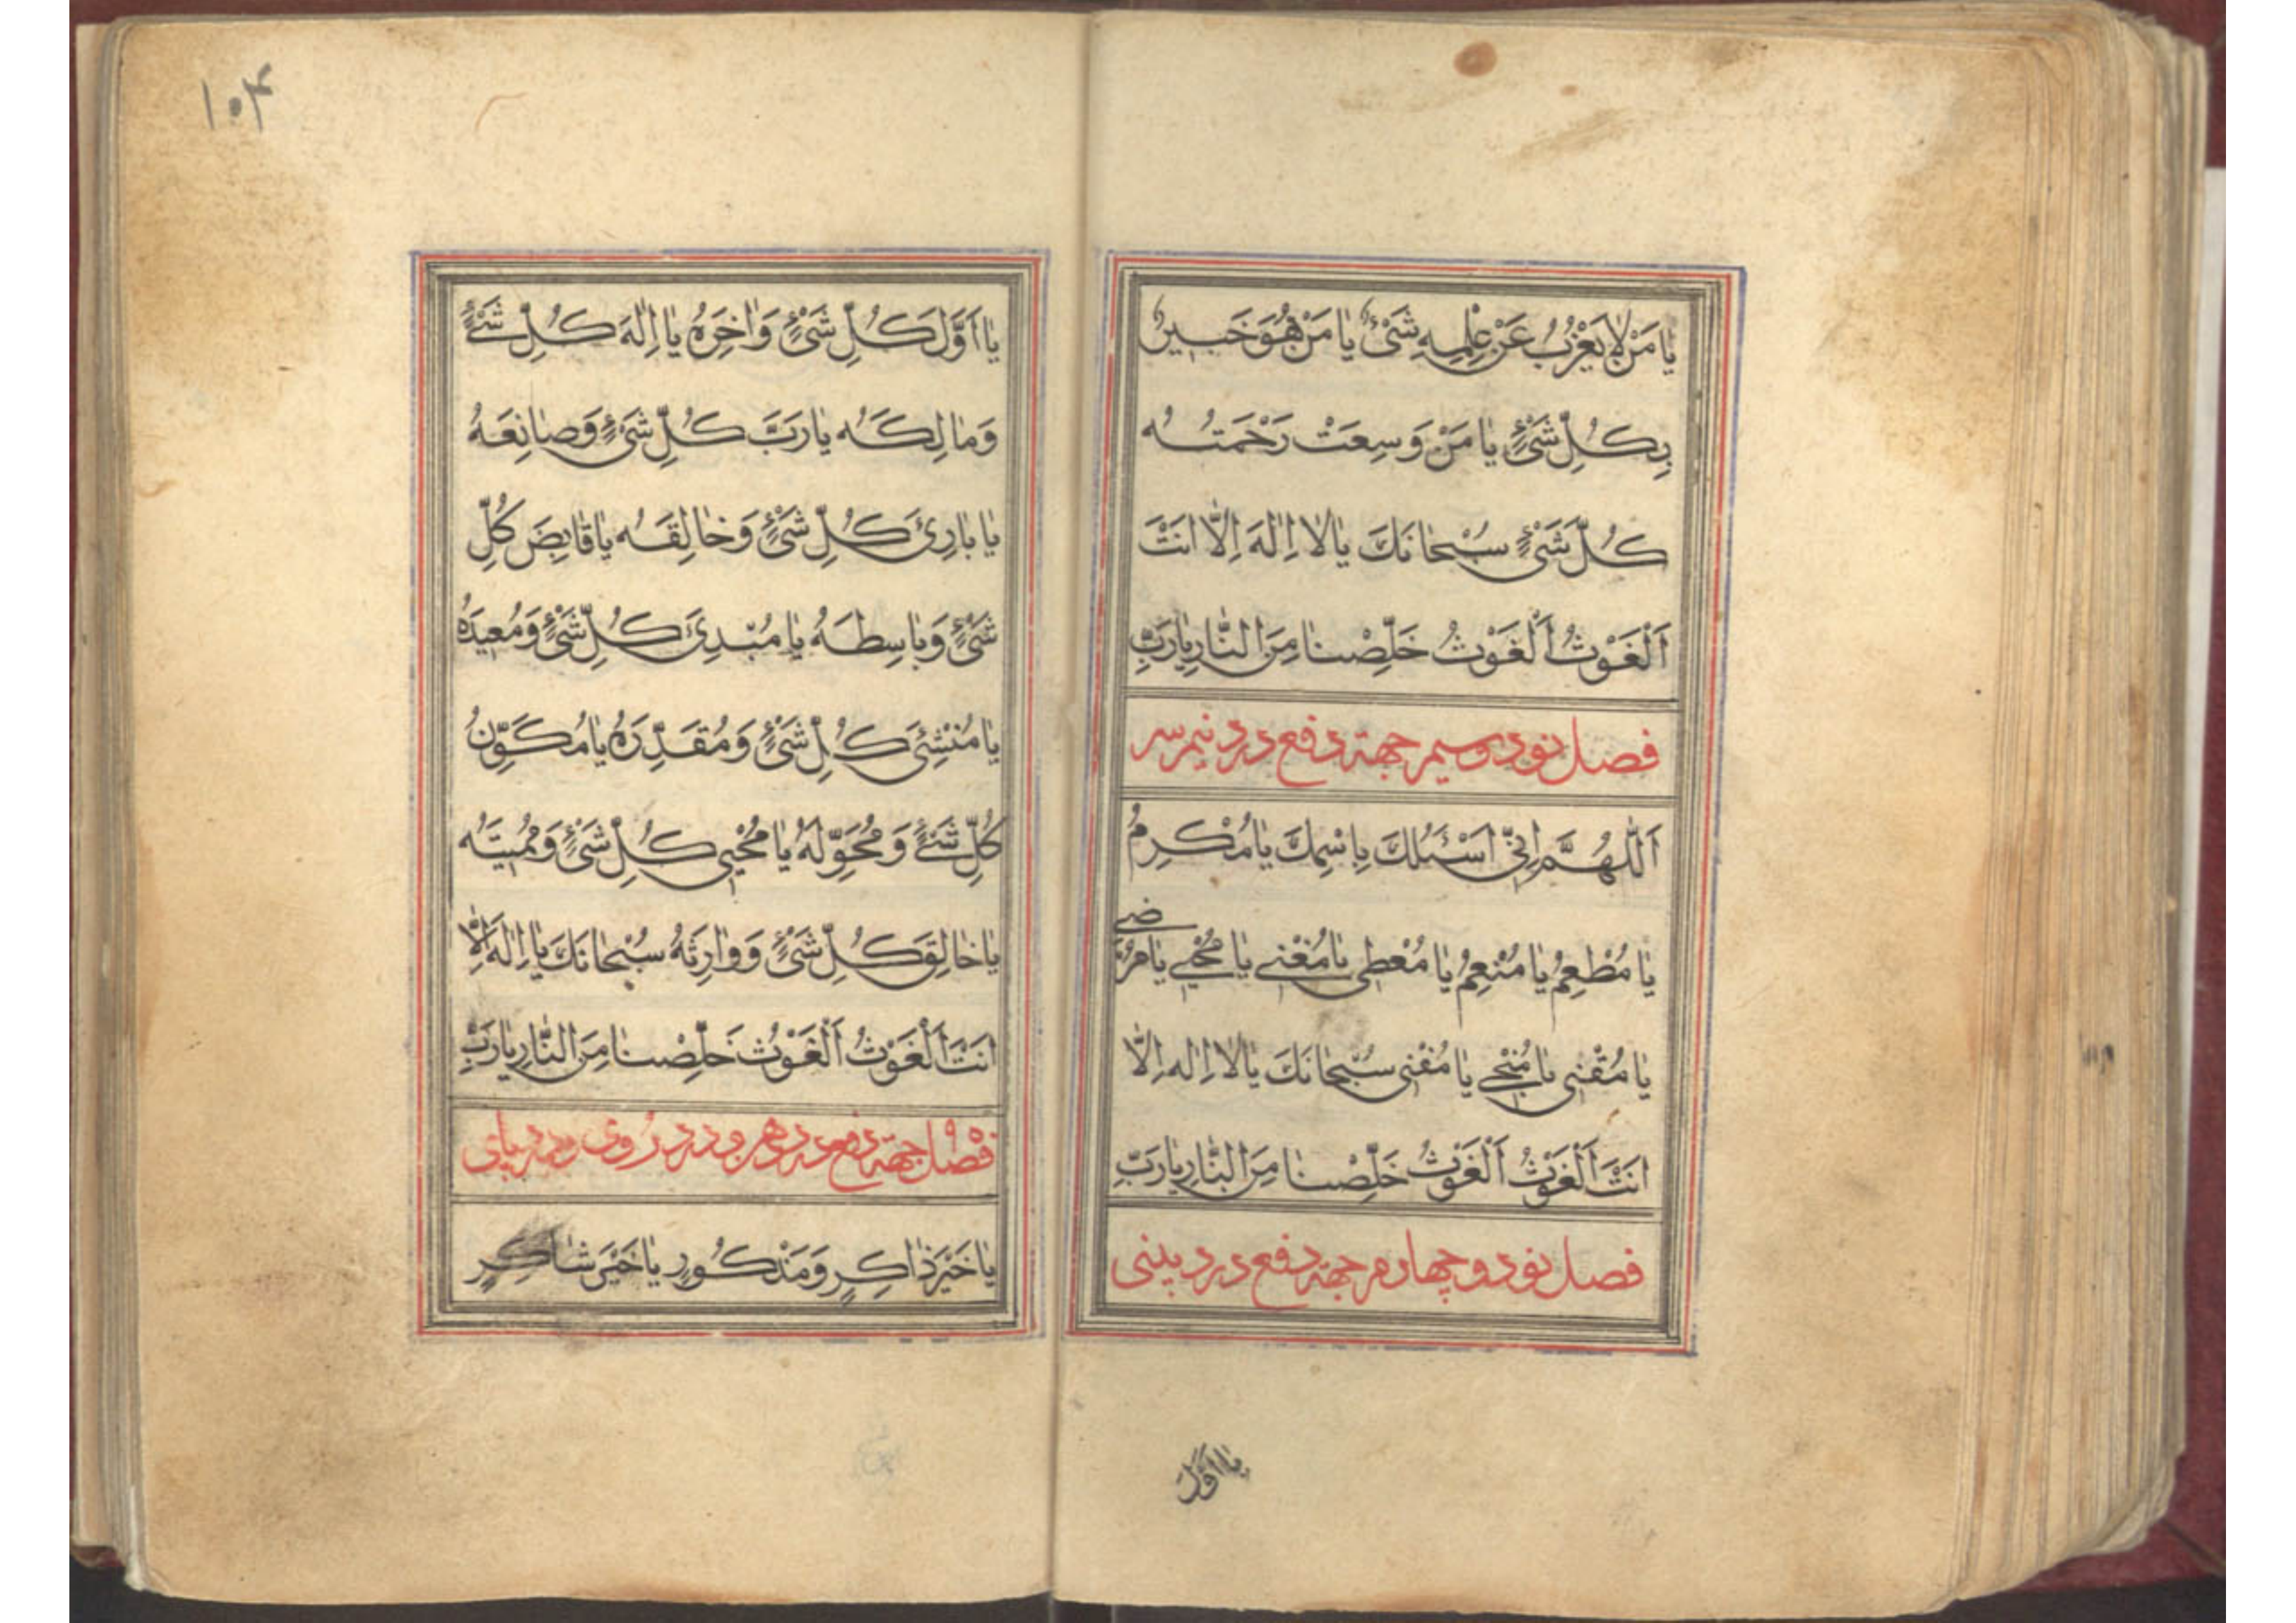 يٰا مَنْ لاٰ يَعْزُبُ عَنْ عِلْمِهِ شَيْءٌ يٰا مَنْ هُوَ خَبيرٌ
بِكُلِّ شَيْءٍ يٰا مَنْ وَسِعَتْ رَحْمَتُهُ
كُلَّ شَيْءٍ سُبْحٰانَكَ يٰا لاٰ اِلٰهَ اِلاّٰ اَنْتَ
اَلْغَوْثُ اَلْغَوْثُ خَلِّصْنٰا مِنَ النّٰارِ يٰا رَبِّ
فصل نود و سیم جهة دفع درد نیم سر
اَللّٰهُمَّ اِنّي اَسْئَلُكَ بِاسْمِكَ يٰا مُكْرِمُ
يٰا مُطْعِمُ يٰا مُنْعِمُ يٰا مُعْطي يٰا مُغْني يٰا مُحْيي يٰا مُرْضي
يٰا مُقْني يٰا مُنْجي يٰا مُفْني سُبْحٰانَكَ يٰا لاٰ اِلٰه اِلاّٰ
اَنْتَ اَلْغَوْثُ اَلْغَوْثُ خَلِّصْنٰا مِنَ النّٰارِ يٰا رَبِّ
فصل نود و چهارم جهة دفع درد بینی
يٰا اَوَّلَ
۱۰۴
يٰا اَوَّلَ كُلِّ شَيْءٍ وَاٰخِرَهُ يٰا اِلٰهَ كُلِّ شَيْءٍ
وَمٰالِكَه يٰا رَبَّ كُلِّ شَيْءٍ وَصٰانِعَهُ
يٰا بٰارِئَ كُلِّ شَيْءٍ وَخٰالِقَهُ يٰا قٰابِضَ كُلِّ
شَيْءٍ وَبٰاسِطَهُ يٰا مُبْدِئَ كُلِّ شَيْءٍ وَمُعيدَهُ
يٰا مُنْشِئَ كُلِّ شَيْءٍ وَمُقَدِّرَهُ يٰا مُكَوِّنُ
كُلِّ شَيْءٍ وَمُحَوِّلَهُ يٰا مُحْيي كُلِّ شَيْءٍ وَمُميتَهُ
يٰا خٰالِقَ كُلِّ شَيْءٍ وَوٰارِثَهُ سُبْحٰانَكَ يٰا اِلٰهَ اِلاّٰ
اَنْتَ اَلْغَوْثُ اَلْغَوْثُ خَلِّصْنٰا مِنَ النّٰارِ يٰا رَبِّ
فصل جهة دفع درد هر و درد روی و درد پای
يٰا خَيْرَ ذٰاكِرٍ وَمَذْكُورٍ يٰا خَيْرَ شٰاكِرٍ